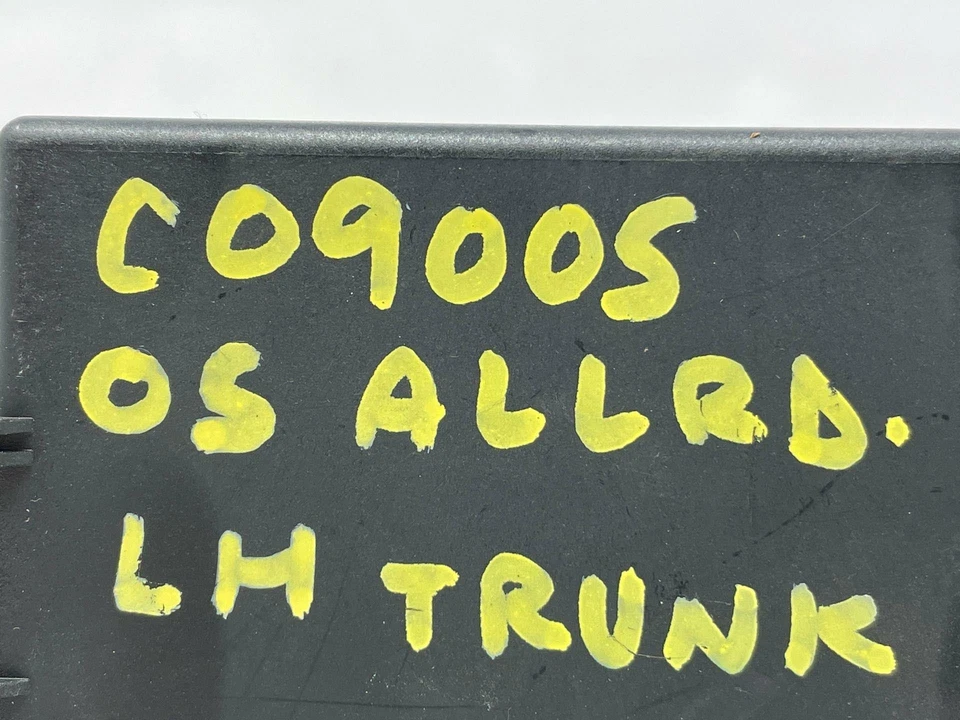 C09005
05 ALLRD.
LH TRUNK